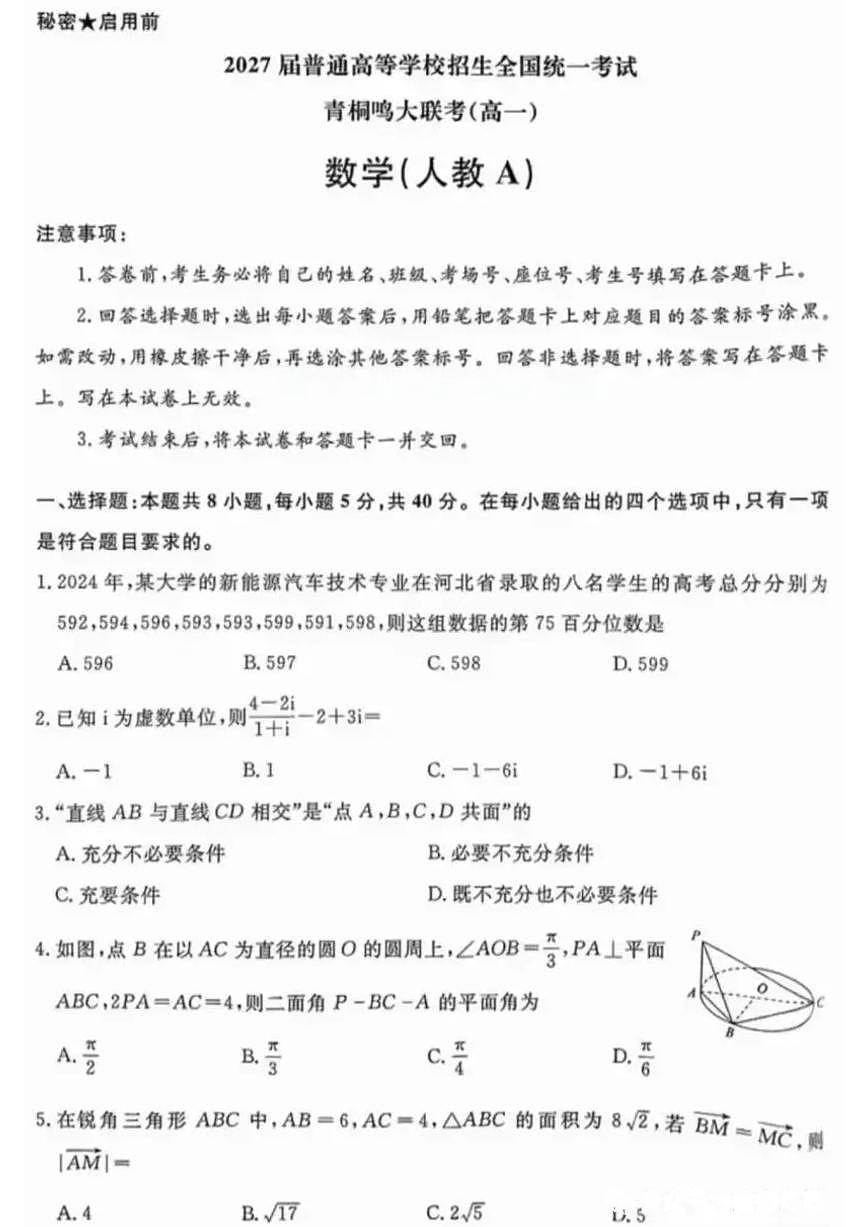 秘密★启用前
2027届普通高等学校招生全国统一考试
青桐鸣大联考(高一)
数学(人教A)
注意事项:
1.答卷前,考生务必将自己的姓名、班级、考场号、座位号、考生号填写在答题卡上。
2.回答选择题时,选出每小题答案后,用铅笔把答题卡上对应题目的答案标号涂黑。
如需改动,用橡皮擦干净后,再选涂其他答案标号。回答非选择题时,将答案写在答题卡
上。写在本试卷上无效。
3.考试结束后,将本试卷和答题卡一并交回。
一、选择题:本题共8小题,每小题5分,共40分。在每小题给出的四个选项中,只有一项
是符合题目要求的。
1.2024年,某大学的新能源汽车技术专业在河北省录取的八名学生的高考总分分别为
592,594,596,593,593,599,591,598,则这组数据的第75百分位数是
A.596 B.597 C.598 D.599
2.已知i为虚数单位,则\frac{4-2i}{1+i}-2+3i=
A.-1 B.1 C.-1-6i D.-1+6i
3.“直线AB与直线CD相交”是“点A,B,C,D共面”的
A.充分不必要条件 B.必要不充分条件
C.充要条件 D.既不充分也不必要条件
4.如图,点B在以AC为直径的圆O的圆周上,∠AOB=\frac{π}{3},PA⊥平面
ABC,2PA=AC=4,则二面角P-BC-A的平面角为
P
A
O
C
B
A.\frac{π}{2} B.\frac{π}{3} C.\frac{π}{4} D.\frac{π}{6}
5.在锐角三角形ABC中,AB=6,AC=4,△ABC的面积为8√2,若\overrightarrow{BM}=\overrightarrow{MC},则
|\overrightarrow{AM}|=
A.4 B.√17 C.2√5 D.5